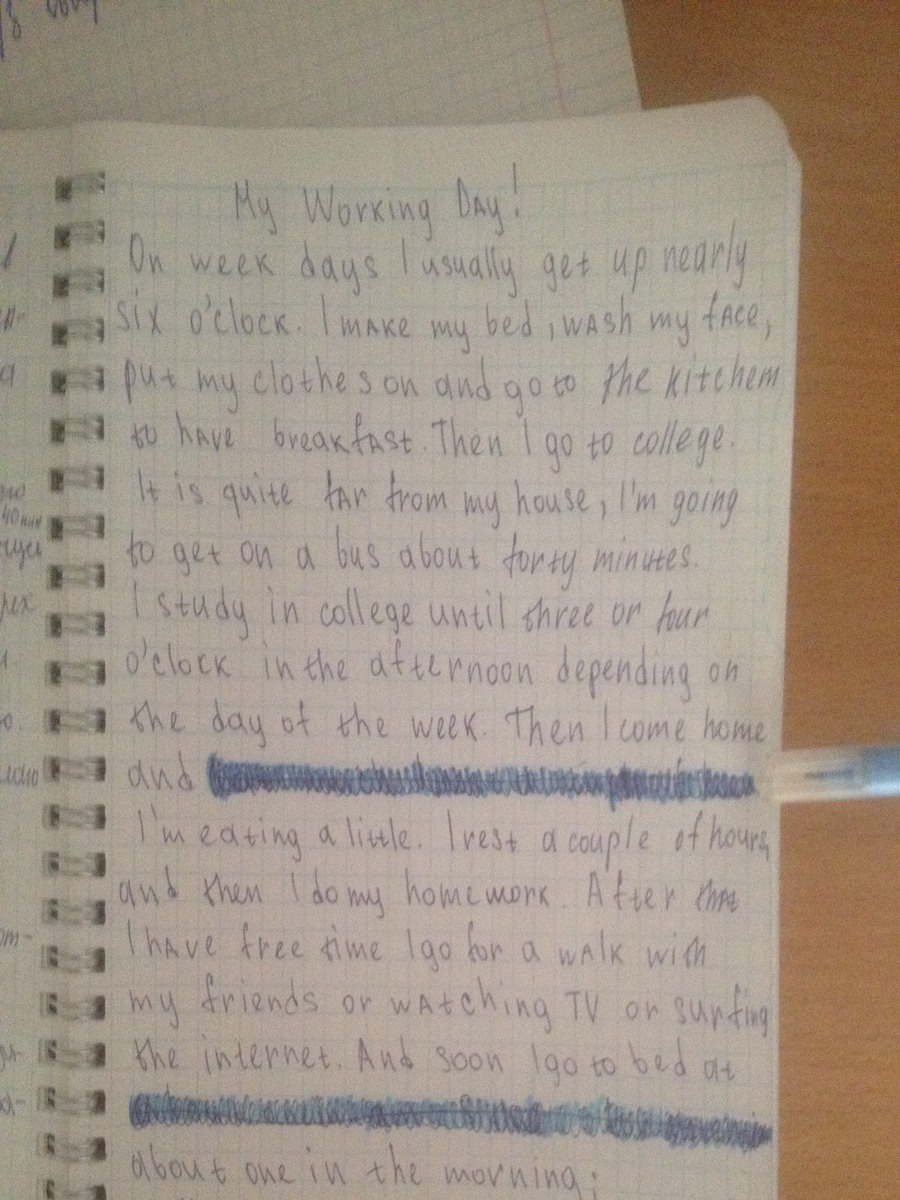 My Working Day!
On week days I usually get up nearly
six o'clock. I make my bed, wash my face,
put my clothes on and go to the kitchem
to have breakfast. Then I go to college.
It is quite far from my house, I'm going
to get on a bus about forty minutes.
I study in college until three or four
o'clock in the afternoon depending on
the day of the week. Then I come home
and
I'm eating a little. I rest a couple of hours,
and then I do my homework. After that
I have free time I go for a walk with
my friends or watching TV or surfing
the internet. And soon I go to bed at
about one in the morning.